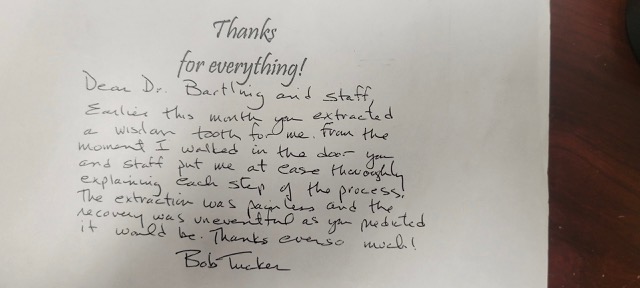 Thanks
for everything!
Dear Dr. Bartling and staff,
Earlier this month you extracted
a wisdom tooth for me. From the
moment I walked in the door you
and staff put me at ease thoroughly
explaining each step of the process.
The extraction was painless and the
recovery was uneventful as you predicted
it would be. Thanks ever so much!
Bob Tucker